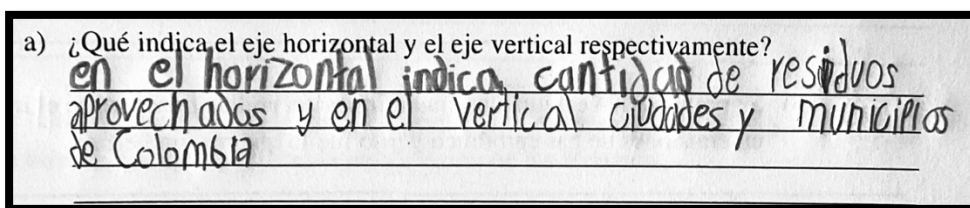 a) ¿Qué indica el eje horizontal y el eje vertical respectivamente?
en el horizontal indica cantidad de residuos
aprovechados y en el vertical ciudades y municipios
de Colombia